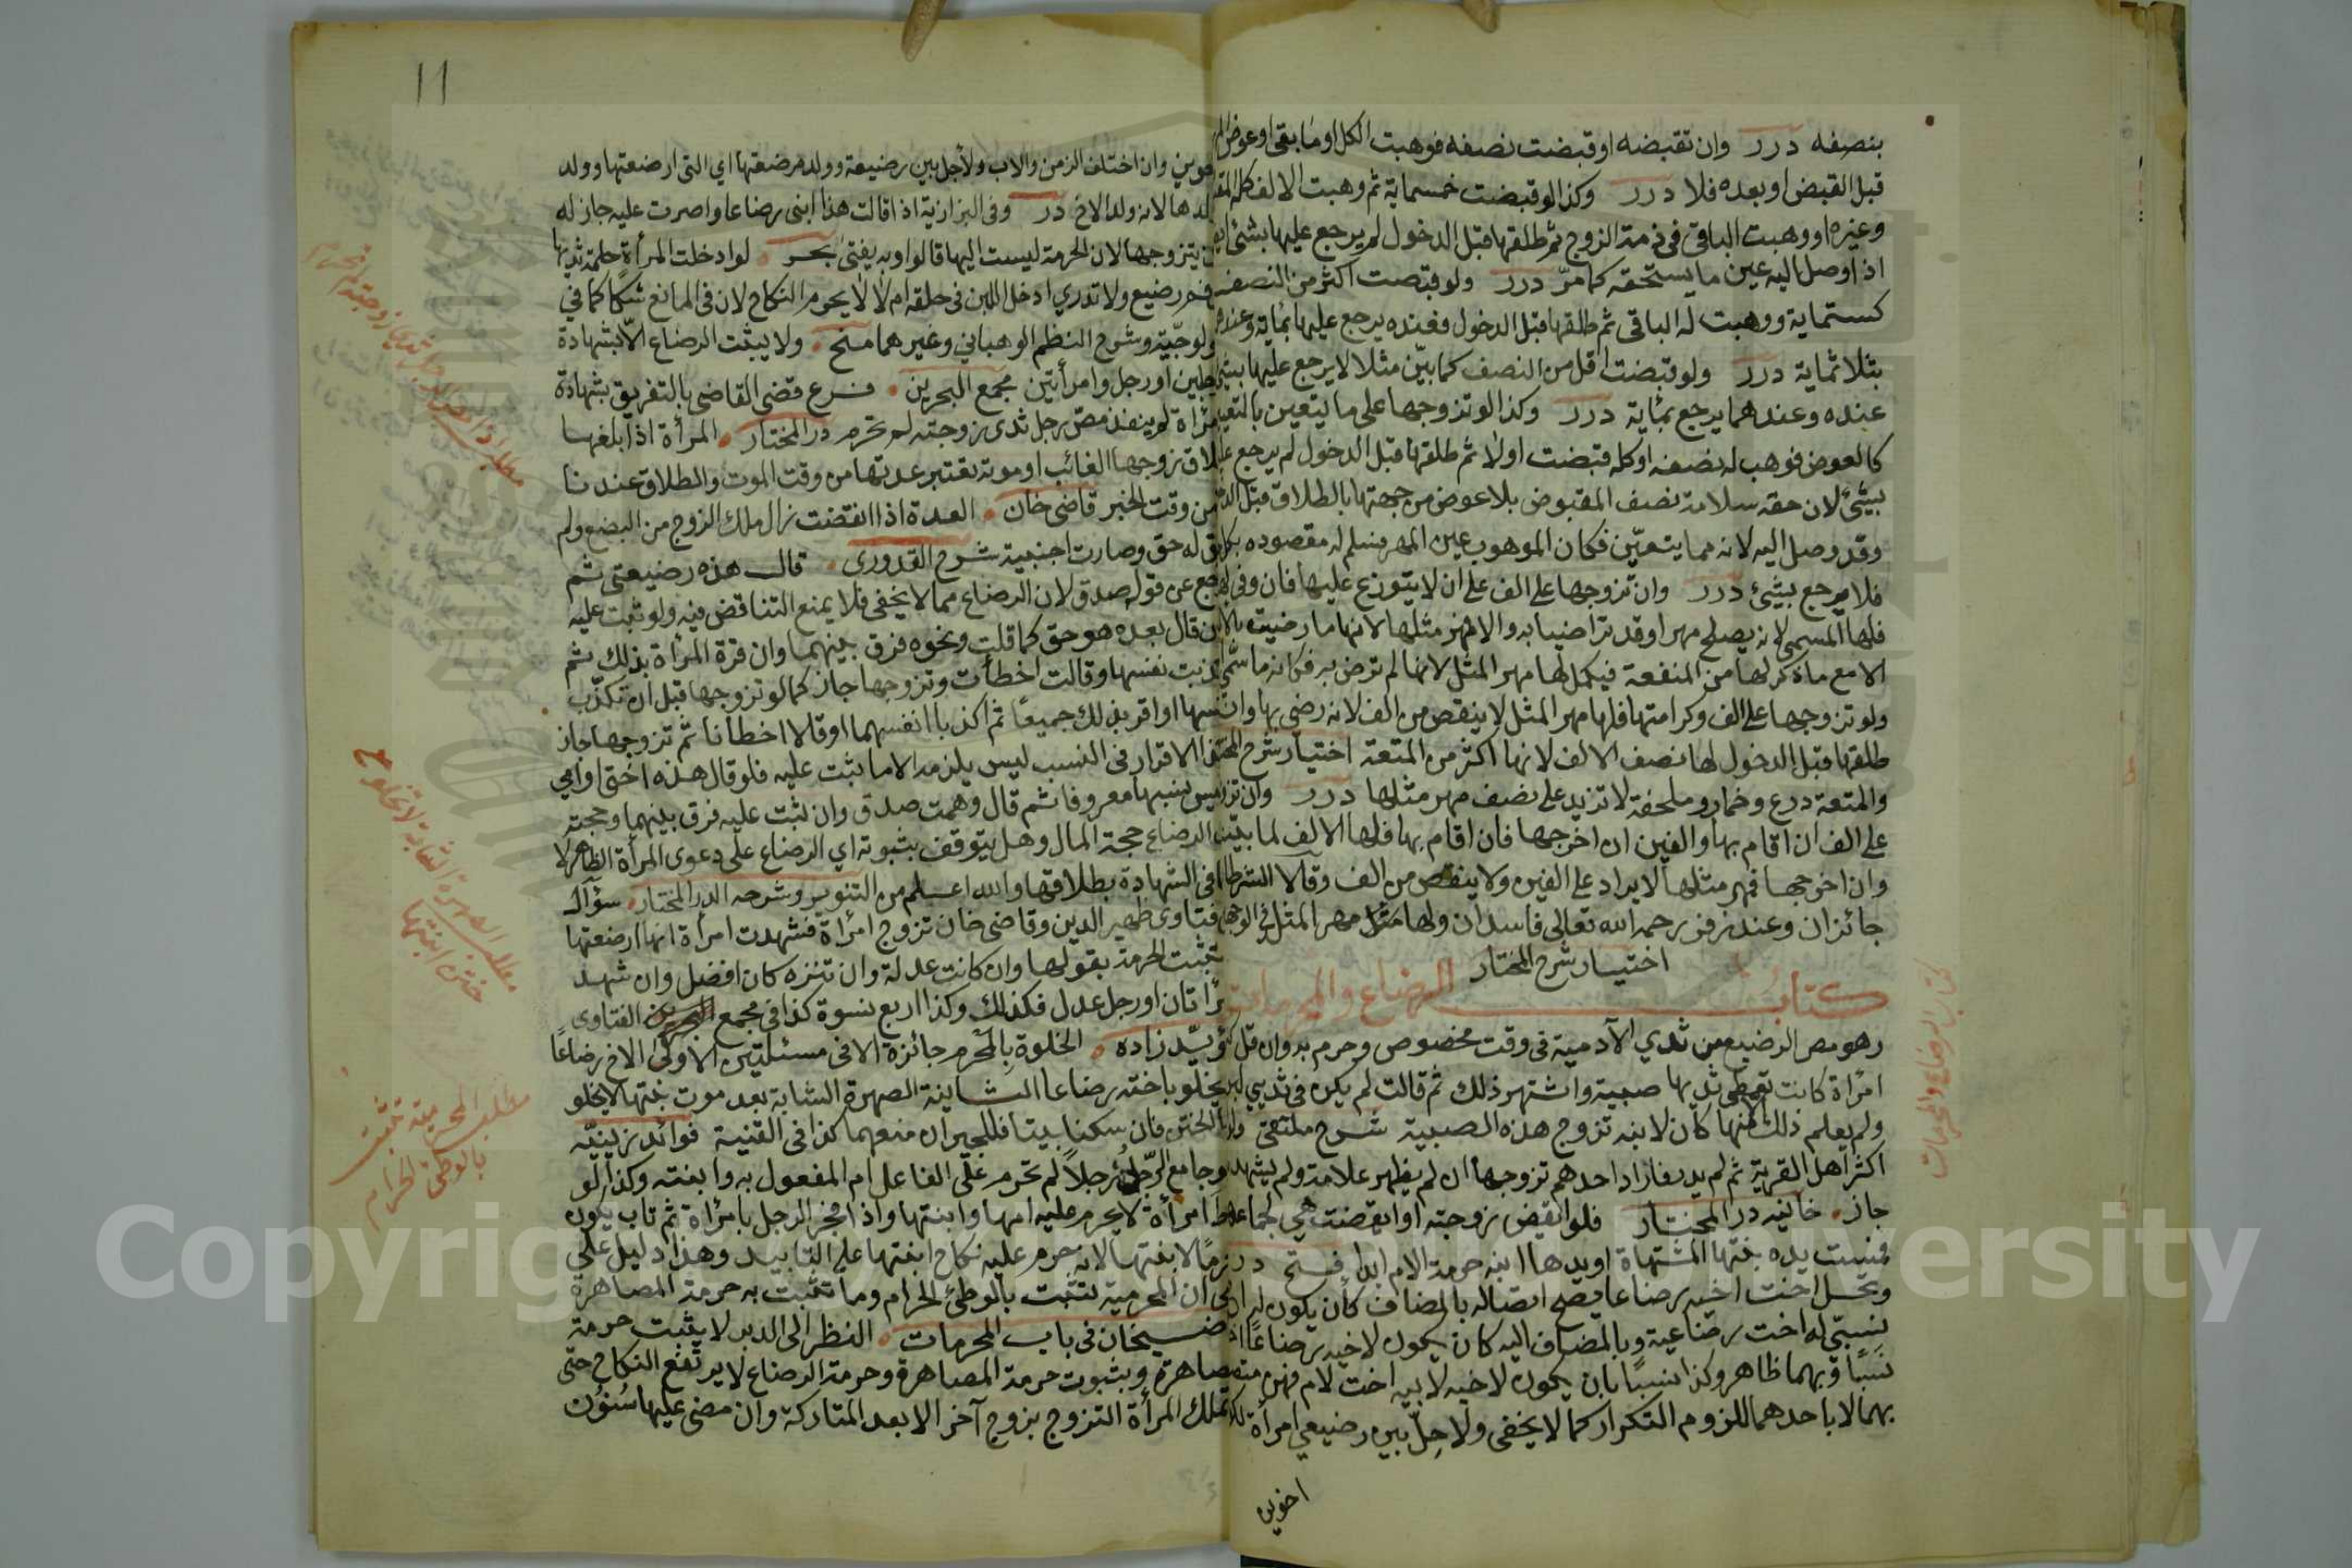 بنصفه درر وان تقبضه او قبضت نصفه فوهبت الكل او ما بقي او عوض المهر
قبل القبض او بعده فلا درر وكذا لو قبضت خمسماية ثم وهبت الالف كله
وغيره او وهبت الباقي في ذمة الزوج ثم طلقها قبل الدخول لم يرجع عليها بشئ
اذا وصل اليه عين ما يستحقه كما مرّ درر ولو قبضت اكثر من النصف
كستماية ووهبت له الباقي ثم طلقها قبل الدخول فعنده يرجع عليها بمٔاية وعندهما
بثلاثماية درر ولو قبضت اقل من النصف كما بيّن مثلا لا يرجع عليها بشئ
عنده وعندهما يرجع بمٔاية درر وكذا لو تزوجها على ما يتعين بالتعيين
كالعوض فوهب له نصفه او كله قبضت اولا ثم طلقها قبل الدخول لم يرجع عليها
بشئ لان حقه سلامة نصف المقبوض بلا عوض من جهتها بالطلاق قبل الدخول
وقد وصل اليه لانه مما يتعيّن فكان الموهوب عين المهر فسلم له مقصوده
فلا يرجع بشئ درر وان تزوجها على الف على ان لا يتزوج عليها فان وفى
فلها المسمى لانه يصلح مهرا وقد تراضيا به والا فمهر مثلها لانها ما رضيت بالالف
الا مع ما ذكر لها من المنفعة فيكمل لها مهر المثل لانها لم ترض به فكانه ما سمّى
ولو تزوجها على الف وكرامتها فلها مهر المثل لا ينقص من الف لانه رضي بها وان
طلقها قبل الدخول لها نصف الالف لانها اكثر من المتعة اختيار شرح المختار
والمتعة درع وخمار وملحفة لا تزيد على نصف مهر مثلها درر وان تزوجها
على الف ان اقام بها والفين ان اخرجها فان اقام بها فلها الالف لما بيّنا
وان اخرجها فمهر مثلها لا يراد على الفين ولا ينقص من الف وقالا الشرطان
جائزان وعند زفر رحمه الله تعالى فاسدان ولها مهر المثل في الوجهين
اختيار شرح المختار
كتاب الرضاع والمحرمات
وهو مص الرضيع من ثدي الآدمية في وقت مخصوص وحرم به وان قلّ
امرأة كانت تعطى ثديها صبية واشتهر ذلك ثم قالت لم يكن في ثديي لبن
ولم يعلم ذلك الا منها كان لابنه تزوج هذه الصبية شرح ملتقى
اكثر اهل القرية ثم لم يدر فاراد احدهم تزوجها ان لم يظهر علامة ولم يشهد
جاز خانيه در المختار فلو ايقض زوجته او ايقضته هي لجماعها
فمست يده بنتها المشتهاة او يدها ابنه حرمة الام ابدا فتح
وتحل اخت اخيه رضاعا يصح اتصاله بالمضاف كأن يكون له اخ
نسبيّ له اخت رضاعية وبالمضاف اليه كان يكون لاخيه رضاعًا
نسبًا وبهما ظاهر وكذا نسبًا بان يكون لاخيه لابيه اخت لام فهو
بهما لا باحدهما للزوم التكرار كما لا يخفى ولا حِلّ بين رضيعي امرأة
اخوين
كتاب الرضاع والمحرمات
11
وان اختلف الزمن والاب ولا حل بين رضيعة وولد مرضعتها اي التي ارضعتها وولد
ولدها لانه ولد الاخ در وفي البزازية اذا قالت هذا ابني رضاعا واصرت عليه جاز له
ان يتزوجها لان الحرمة ليست اليها قالوا وبه يفتى بحر لو ادخلت المرأة حلمة ثديها
في فم رضيع ولا تدري ادخل اللبن في حلقه ام لا لا يحرم النكاح لان في المانع شكًا كما في
الولوجيّة وشرح النظم الوهباني وغيرهما منح ولا يثبت الرضاع الا بشهادة
رجلين او رجل وامرأتين مجمع البحرين فرع قضى القاضي بالتفريق بشهادة
امرأة لم ينفذ مصّ رجل ثدى زوجته لم تحرم در المختار المرأة اذا بلغها
طلاق زوجها الغائب او موته تعتبر عدتها من وقت الموت والطلاق عندنا
من وقت الخبر قاضي خان العدة اذا انقضت زال ملك الزوج من البضع ولم
يبق له حق وصارت اجنبية شرح القدورى قال هذه رضيعتى ثم
رجع عن قوله صدق لان الرضاع مما لا يخفى فلا يمنع التناقض فيه ولو ثبت عليه
بان قال بعده هو حق كما قلت ونحوه فرق بينهما وان قرة المرأة بذلك ثم
اكذبت نفسها وقالت اخطأت وتزوجها جاز كما لو تزوجها قبل ان تكذّب
نفسها او اقر بذلك جميعًا ثم اكذبا انفسهما او قالا اخطأنا ثم تزوجها جاز
الاقرار في النسب ليس يلزمه الا ما ثبت عليه فلو قال هذه اختى او امي
وليس نسبها معروفا ثم قال وهمت صدق وان ثبت عليه فرق بينهما وحجته
الرضاع حجة المال وهل يتوقف بثبوته اي الرضاع على دعوى المرأة الظاهر لا
كما في الشهادة بطلاقها والله اعلم من التنوير وشرحه الدر المختار سؤال
فتاوى ظهير الدين وقاضي خان تزوج امرأة فشهدت امرأة انها ارضعتها
تثبت الحرمة بقولها وان كانت عدلة وان تنزه كان افضل وان شهد
امرأتان او رجل عدل فكذلك وكذا اربع نسوة كذا في مجمع الفتاوى
مؤيّد زاده الخلوة بالمَحْرم جائزة الا في مسئلتين الاولى الاخ رضاعًا
لا يخلو باخته رضاعا الثانية الصهرة الشابة بعد موت بنتها لا يخلو
بها الختن فان سكنا بيتا فللجيران منعهما كذا في القنية فوائد زينيّه
لو جامع الرّجل رجلًا لم تحرم على الفاعل ام المفعول به وابنته وكذا لو
امرأة لا يحرم عليه امها وابنتها واذا فجر الرجل بامرأة ثم تاب يكون
محرمًا لابنتها لانه حرم عليه نكاح ابنتها على التابيد وهذا دليل على
ان المحرمية تثبت بالوطئ الحرام وما تثبت به حرمة المصاهرة
قاضيخان في باب المحرمات النظر الى الدبر لا يثبت حرمة
المصاهرة وبثبوت حرمة المصاهرة وحرمة الرضاع لا يرتفع النكاح حتى
لا تملك المرأة التزوج بزوج آخر الا بعد المتاركة وان مضى عليها سُنُون
مطلب الصهرة الشابة لا يخلو مع
ختن ابنتها
مطلب المحرمية تثبت
بالوطئ الحرام
Copyright University